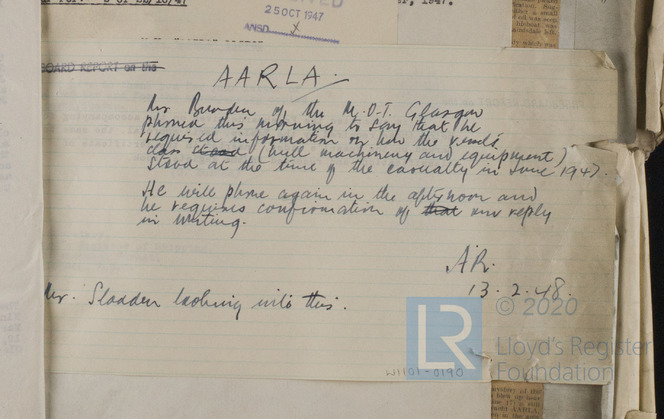 25 OCT 1947
ANSD. X
BOARD REPORT on the
AARLA.
Mr Brunden of the M.O.T. Glasgow
phoned this morning to say that he
required information on how the vessel's
class stood (hull machinery and equipment)
stood at the time of the casualty in June 1947.
He will phone again in the afternoon and
he requires confirmation of that our reply
in writing.
A.R.
13.2.48.
Mr. Sladden looking into this.
LR
© 2020
Lloyd's Register
Foundation
W1101-0190